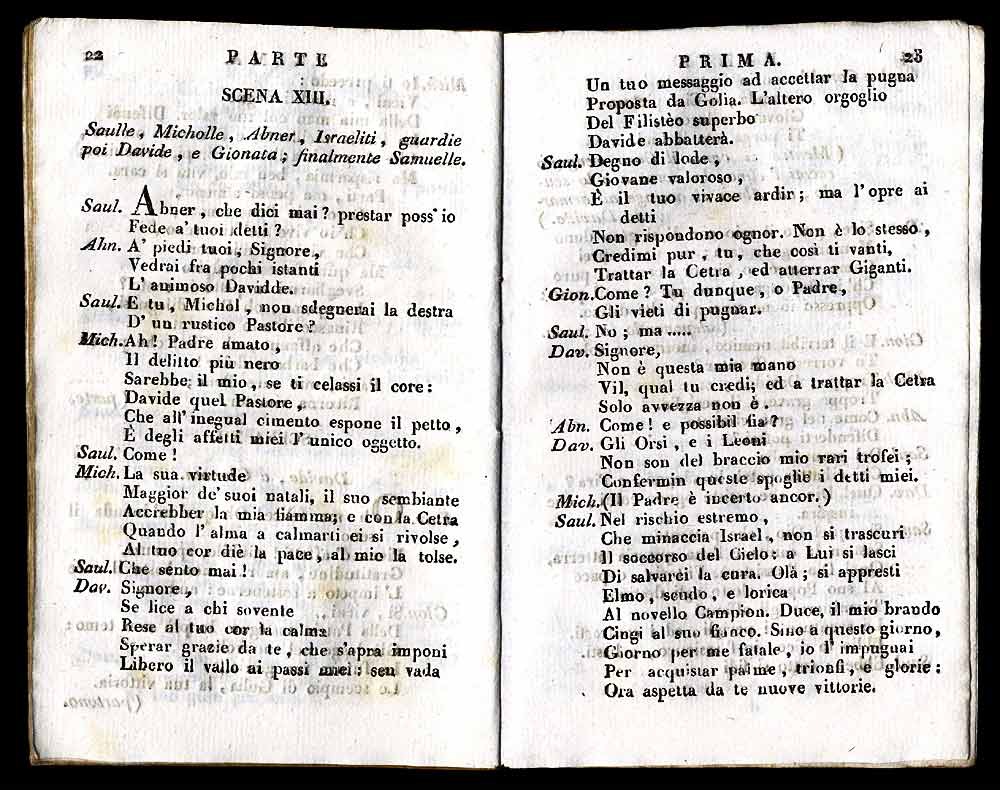 22
PARTE
SCENA XIII.
Saulle, Micholle, Abner, Israeliti, guardie
poi Davide, e Gionata; finalmente Samuelle.
Saul. Abner, che dici mai? prestar poss' io
Fede a' tuoi detti?
Abn. A' piedi tuoi, Signore,
Vedrai fra pochi istanti
L' animoso Davidde.
Saul. E tu, Michol, non sdegnerai la destra
D' un rustico Pastore?
Mich. Ah! Padre amato,
Il delitto più nero
Sarebbe il mio, se ti celassi il core:
Davide quel Pastore,
Che all' inegual cimento espone il petto,
È degli affetti miei l' unico oggetto.
Saul. Come!
Mich. La sua virtude
Maggior de' suoi natali, il suo sembiante
Accrebber la mia fiamma; e con la Cetra
Quando l' alma a calmarti ei si rivolse,
Al tuo cor diè la pace, al mio la tolse.
Saul. Che sento mai!
Dav. Signore,
Se lice a chi sovente
Rese al tuo cor la calma
Sperar grazie da te, che s'apra imponi
Libero il vallo ai passi miei: sen vada
PRIMA.
23
Un tuo messaggio ad accettar la pugna
Proposta da Golia. L'altero orgoglio
Del Filistèo superbo
Davide abbatterà.
Saul. Degno di lode,
Giovane valoroso,
È il tuo vivace ardir; ma l'opre ai
detti
Non rispondono ognor. Non è lo stesso,
Credimi pur, tu, che così ti vanti,
Trattar la Cetra, ed atterrar Giganti.
Gion. Come? Tu dunque, o Padre,
Gli vieti di pugnar.
Saul. No; ma.....
Dav. Signore,
Non è questa mia mano
Vil, qual tu credi; ed a trattar la Cetra
Solo avvezza non è.
Abn. Come! e possibil fia?
Dav. Gli Orsi, e i Leoni
Non son del braccio mio rari trofei;
Confermin queste spoglie i detti miei.
Mich. (Il Padre è incerto ancor.)
Saul. Nel rischio estremo,
Che minaccia Israel, non si trascuri
Il soccorso del Cielo: a Lui si lasci
Di salvarci la cura. Olà; si appresti
Elmo, scudo, e lorica
Al novello Campion. Duce, il mio brando
Cingi al suo fianco. Sino a questo giorno,
Giorno per me fatale, io l' impugnai
Per acquistar palme, trionfi, e glorie:
Ora aspetta da te nuove vittorie.